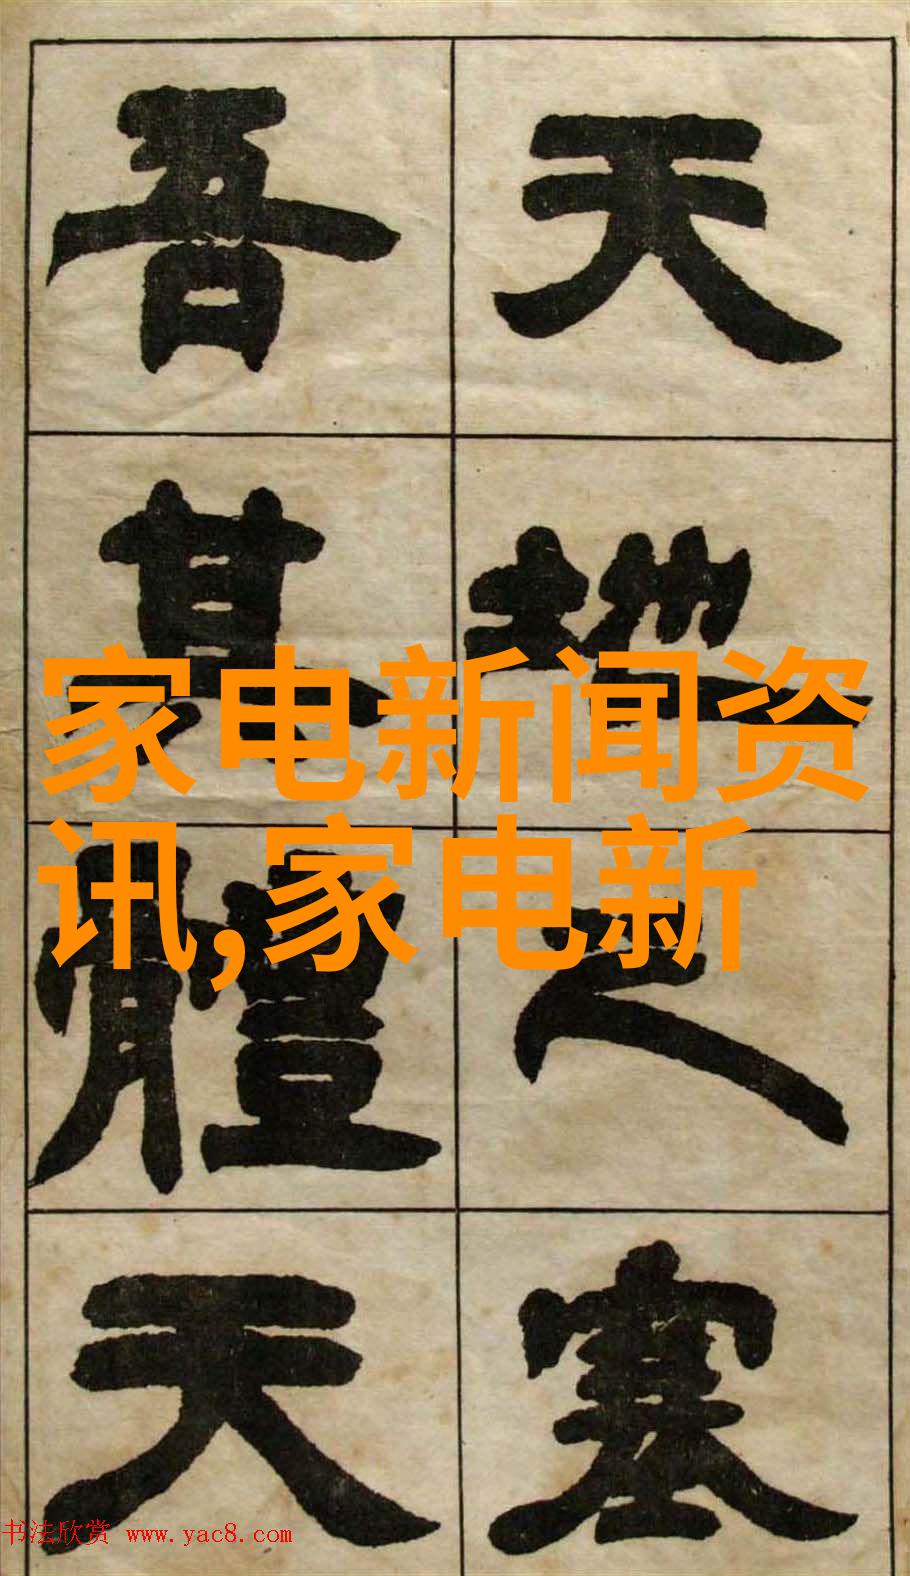 天地之塞
吾其體天
家电新闻资
讯,家电新
书法欣赏 www.yac8.com